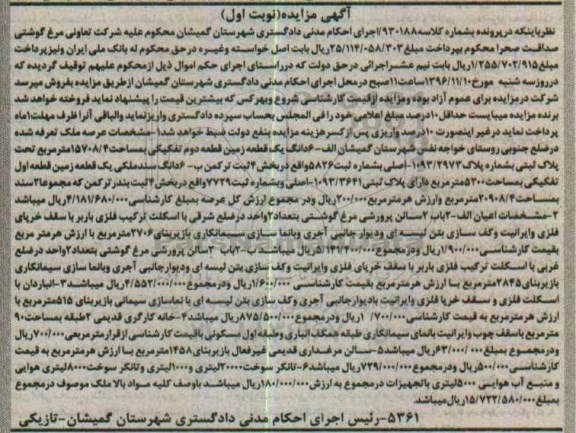 آگهی مزایده(نوبت اول)
نظرباینکه درپرونده بشماره کلاسه۹۳۰۱۸۸/اجرای احکام مدنی دادگستری شهرستان گمیشان محکوم علیه شرکت تعاونی مرغ گوشتی
صداقت صحرا محکوم بپرداخت مبلغ ۲۵/۱۱۴/۰۵۸/۳۰۳ریال بابت اصل خواسته وغیره در حق محکوم له بانک ملی ایران ونیزپرداخت
مبلغ۱/۲۵۵/۷۰۲/۹۱۵ریال بابت نیم عشراجرائی درحق دولت که درراستای اجرای حکم اموال ذیل ازمحکوم علیهم توقیف گردیده که
درروزسه شنبه مورخ۱۳۹۶/۱۱/۱۰ساعت۱۱صبح درمحل اجرای احکام مدنی دادگستری شهرستان گمیشان ازطریق مزایده بفروش میرسد
شرکت درمزایده برای عموم آزاد بوده ومزایده ازقیمت کارشناسی شروع وبهرکس که بیشترین قیمت را پیشنهاد نماید فروخته خواهد شد
برنده مزایده میبایست حداقل۱۰درصد مبلغ اعلامی خود را فی المجلس بحساب سپرده دادگستری واریزنماید والباقی آنرا ظرف مهلت۱ماه
پرداخت نماید در غیر اینصورت ۱۰درصد واریزی پس ازکسر هزینه مزایده بنفع دولت ضبط خواهد شد۱-مشخصات عرصه ملک تعرفه شده
در ضلع جنوبی روستای خواجه نفس شهرستان گمیشان الف-۶دانگ یک قطعه زمین قطعه دوم تفکیکی بمساحت۱۵۷۰۸/۴مترمربع تحت
پلاک ثبتی بشماره پلاک۱۰۹۳/۲۹۷۳-اصلی بشماره ثبت۵۸۲۶واقع دربخش۴ثبت ترکمن ب-۶دانگ سندملکی یک قطعه زمین قطعه اول
تفکیکی بمساحت۵۲۰۰مترمربع دارای پلاک ثبتی ۱۰۹۳/۳۶۲۱-اصلی وبشماره ثبت۷۷۲۹واقع دربخش۴ثبت بندرترکمن که مجموعا۲سند
بمساحت۲۰۹۰۸/۴مترمربع وارزش هرمترمربع۲۰۰/۰۰۰ریال ودر مجموع ارزش کل عرصه بمبلغ کارشناسی۴/۱۸۱/۶۸۰/۰۰۰ریال میباشد
۲-مشخصات اعیان الف-۲باب ۲سالن پرورشی مرغ گوشتی بتعداد۲واحد درضلع شرقی با اسکلت ترکیب فلزی باربر با سقف خرپای
فلزی وایرانیت وکف سازی بتن لیسه ای ودیوار جانبی آجری وبانما سازی سیمانکاری بازیربنای۲۷۰۶مترمربع با ارزش هرمتر مربع
بقیمت کارشناسی۱/۹۰۰/۰۰۰ریال ودرمجموع۵/۱۴۱/۴۰۰/۰۰۰ریال میباشد ب-۲باب ۲سالن پرورشی مرغ گوشتی بتعداد۲واحد درضلع
غربی با اسکلت ترکیب فلزی باربر با سقف خرپای فلزی وایرانیت وکف سازی بتن لیسه ای ودیوارجانبی آجری وبانما سازی سیمانکاری
بازیربنای۲۸۴۵مترمربع بـا ارزش هرمترمربع بقیمت کارشناسی ۱/۶۰۰/۰۰۰ریال ودرمجموع۴/۵۵۲/۰۰۰/۰۰۰ریال میباشد۳-انباردان با
اسکلت فلزی و سقف خرپا فلزی وایرانیت بادیوارجانبی آجری وکف سازی بتن لیسه ای با نماسازی سیمانی بازیربنای ۵۱۵مترمربع با
ارزش هرمترمربع به قیمت کارشناسی ۱/۷۰۰/۰۰۰ریال ودرمجموع۸۷۵/۵۰۰/۰۰۰ریال میباشد۴-خانه کارگری قدیمی ۲طبقه بمساحت۹۰
مترمربع باسقف چوب وایرانیت بانمای سیمانکاری طبقه همکف انباری وطبقه اول مسکونی باقیمت کارشناسی ازقرارمترمربعی۷۰۰/۰۰۰ریال
ودرمجموع بمبلغ۶۳/۰۰۰/۰۰۰ریال میباشد۵-سـالن مرغـداری قدیمی غیرفعال بازیربنای۱۴۵۸مترمربع بـا ارزش هرمترمربع به قیمت
کارشناسی۵۰۰/۰۰۰ریال ودرمجموع۷۲۹/۰۰۰/۰۰۰ریال میباشد۶-تانکر سوخت۲۰۰۰۰لیتری و۱۰۰لیتری وتانکر سوخت۸۰۰۰لیتری هوایی
و منبع آب هوایـی ۵۰۰۰لیتری باتجهیزات درمجموع به ارزش۱۸۰/۰۰۰/۰۰۰ریال میباشـد باوصف کلیه مـواد بالا ملک موصوف درمجموع
بمبلغ۱۵/۷۲۲/۵۸۰/۰۰۰ریال میباشد.
۵۳۶۱-رئیس اجرای احکام مدنی دادگستری شهرستان گمیشان-تازیکی